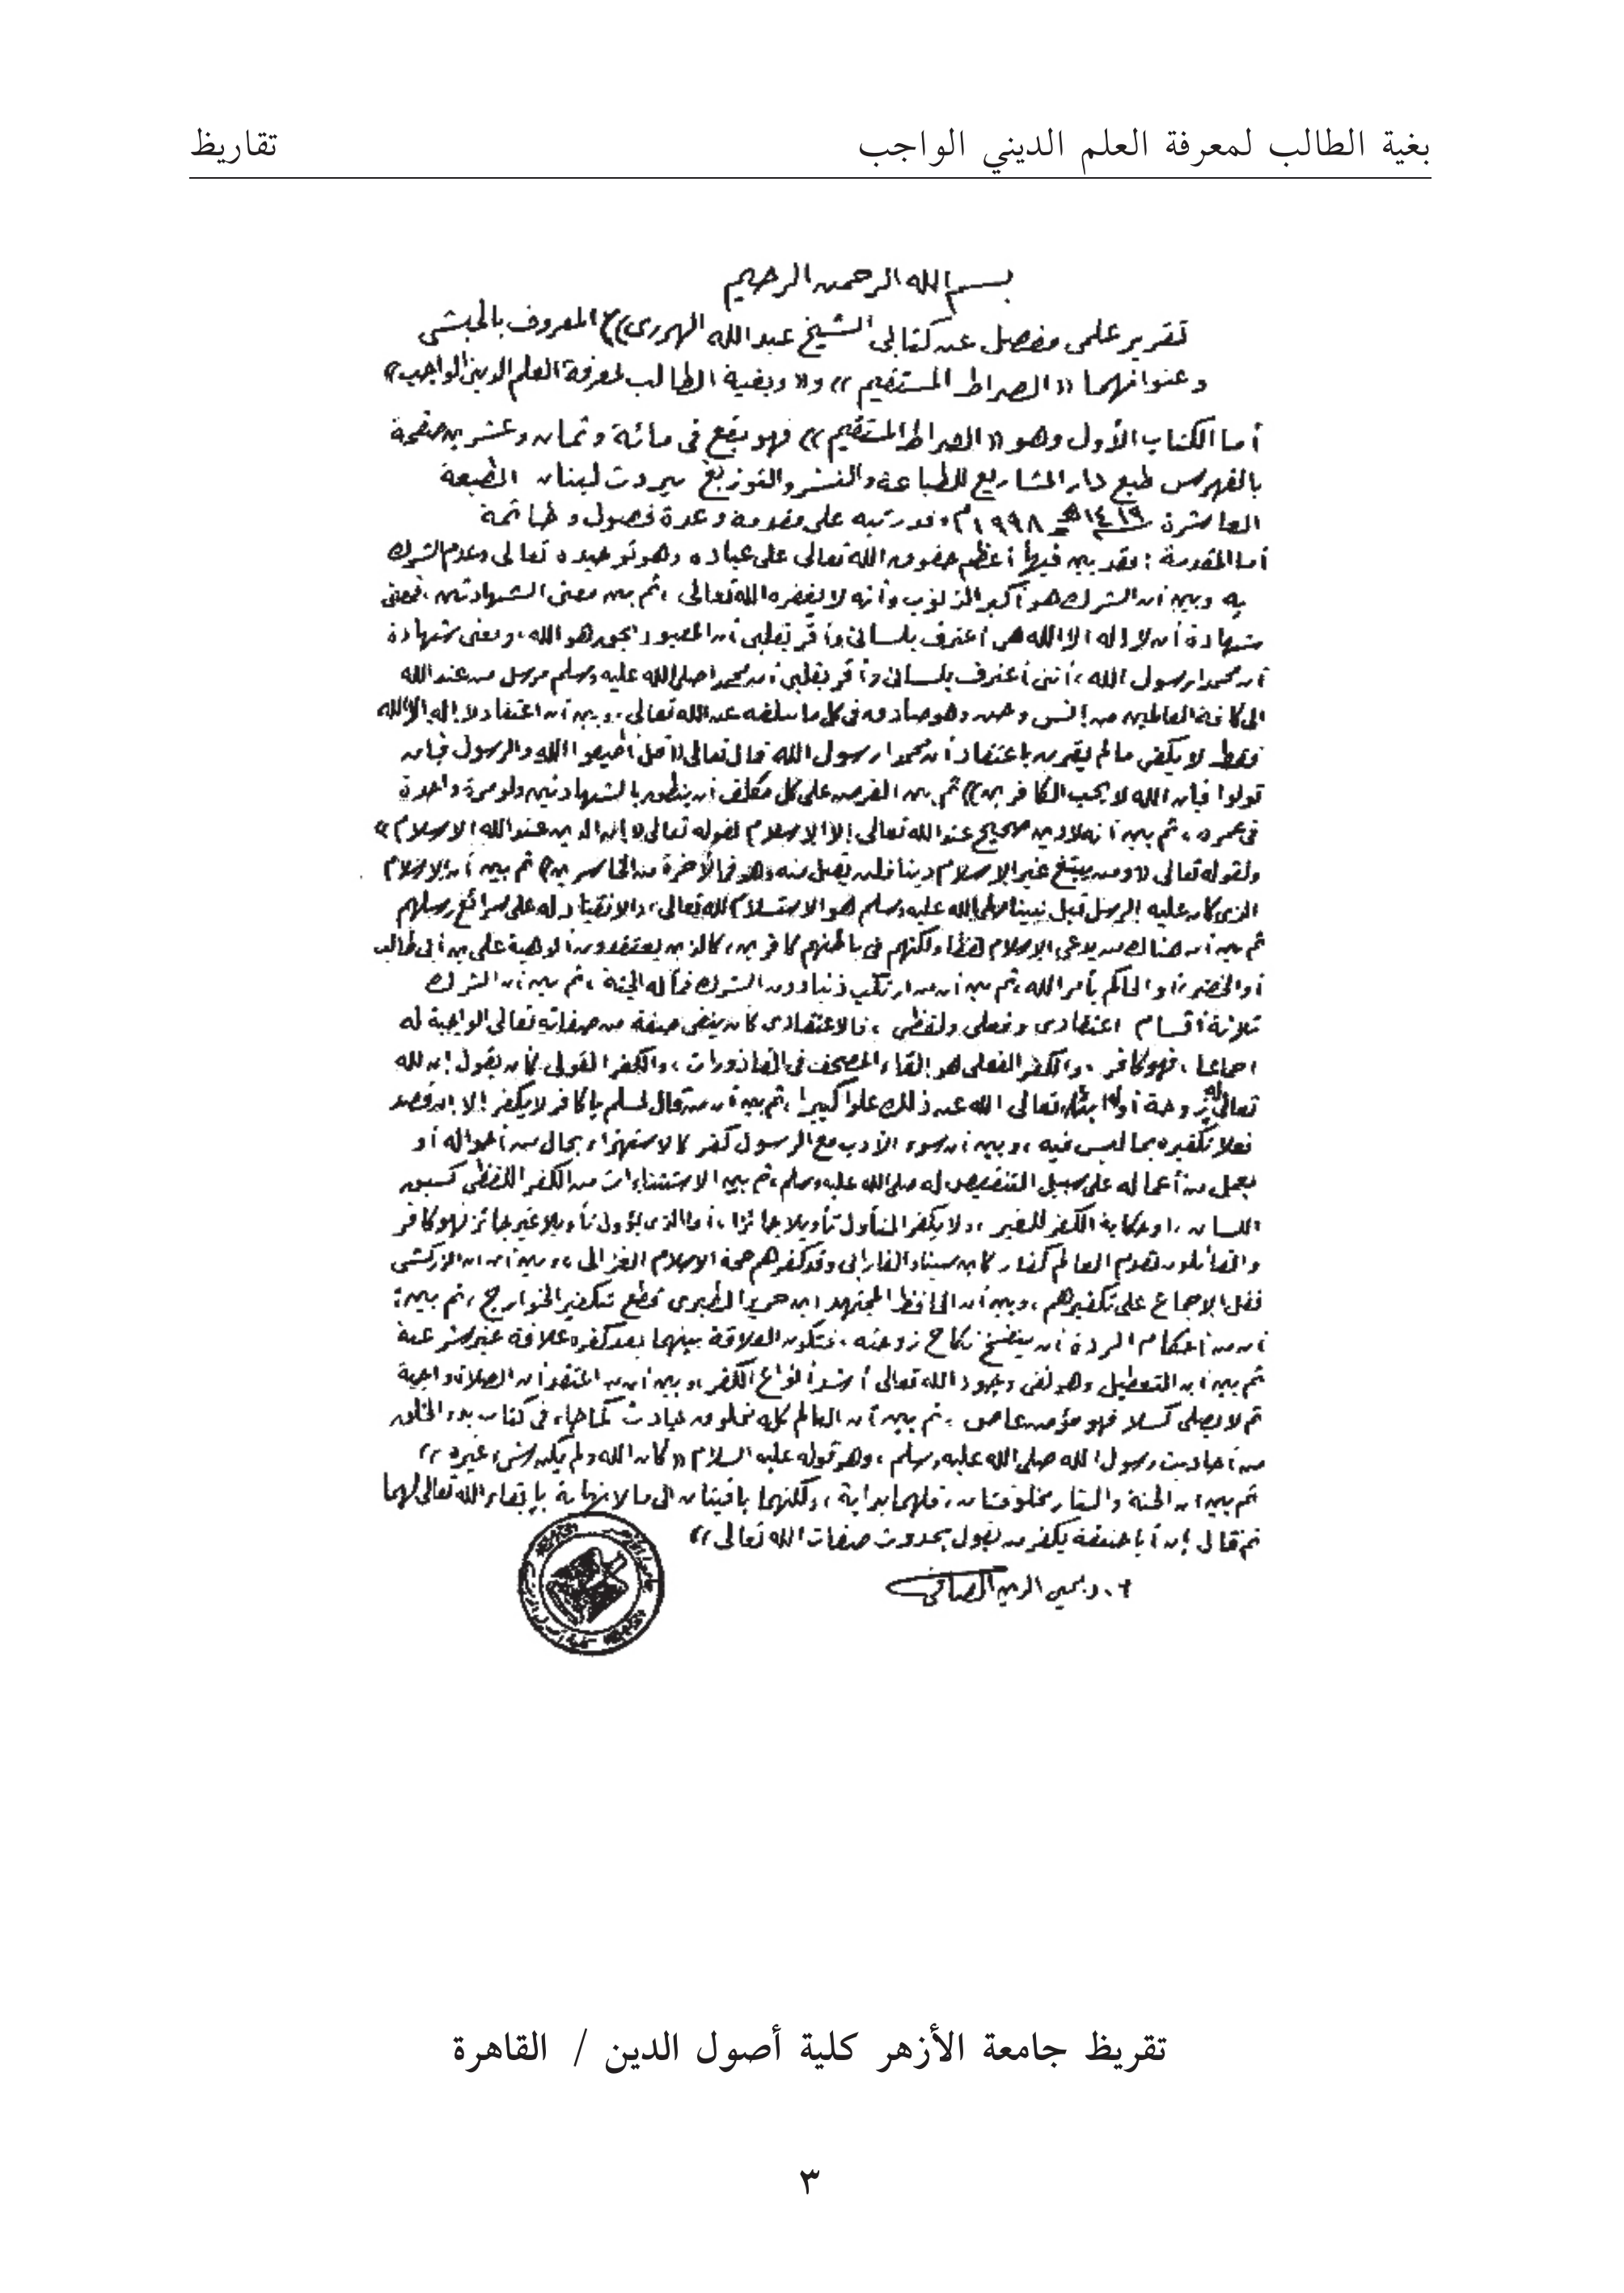 بغية الطالب لمعرفة العلم الديني الواجب
تقاريظ
بسم الله الرحمن الرحيم
تقرير علمى مفصل عن كتابى الشيخ عبد الله الهررى المعروف بالحبشى
وعنوانهما «الصراط المستقيم» و«بغية الطالب لمعرفة العلم الدينى الواجب»
أما الكتاب الأول وهو «الصراط المستقيم» فهو يقع فى مائة وثمان وعشرين صفحة
بالفهرس طبع دار المشاريع للطباعة والنشر والتوزيع بيروت لبنان الطبعة
العاشرة ١٤١٩هـ ١٩٩٨م وقد رتبه على مقدمة وعدة فصول وخاتمة
أما المقدمة: فقد بين فيها أعظم حقوق الله تعالى على عباده وهو توحيده تعالى وعدم الشرك
به وبين أن الشرك هو أكبر الذنوب وأنه لا يغفره الله تعالى، ثم بين معنى الشهادتين، فمعنى
شهادة أن لا إله إلا الله هى أعترف بلسانى وأقر بقلبى أن المعبود بحق هو الله، ومعنى شهادة
أن محمدا رسول الله، أننى أعترف بلسانى وأقر بقلبى أن محمدا صلى الله عليه وسلم مرسل من عند الله
الى كافة العالمين من إنس وجن وهو صادق فى كل ما بلغه عن الله تعالى، وبين أن اعتقاد لا إله إلا الله
فقط لا يكفى ما لم يقرن باعتقاد أن محمدا رسول الله قال تعالى «قل أطيعوا الله والرسول فإن
تولوا فإن الله لا يحب الكافرين» ثم بين الفرض على كل مكلف أن ينطق بالشهادتين ولو مرة واحدة
فى عمره، ثم بين أنه لا دين صحيح عند الله تعالى إلا الإسلام لقوله تعالى «إن الدين عند الله الإسلام»
ولقوله تعالى «ومن يبتغ غير الإسلام دينا فلن يقبل منه وهو فى الآخرة من الخاسرين» ثم بين أن الإسلام
الذى كان عليه الرسل قبل نبينا صلى الله عليه وسلم هو الاستسلام لله تعالى، والانقياد له على شرائع رسلهم
ثم بين أن هنالك من يدعى الإسلام لفظا ولكنهم فى باطنهم كافرين، كالذين يعتقدون ألوهية على بن أبى طالب
أو الخضر، أو الحاكم بأمر الله، ثم بين أن من ارتكب ذنبا دون الشرك فمآله الجنة، ثم بين أن الشرك
ثلاثة أقسام اعتقادى وفعلى ولفظى، فالاعتقادى كأن ينفى صفة من صفاته تعالى الواجبة له
اجماعا، فهو كافر، والكفر الفعلى هو إلقاء المصحف فى القاذورات، والكفر القولى كأن يقول إن لله
تعالى زوجة أو له ابنا، تعالى الله عن ذلك علوا كبيرا، ثم بين أن من قال لمسلم يا كافر لا يكفر إلا إن قصد
فعلا تكفيره بما ليس فيه، وبين أن سوء الأدب مع الرسول كفر كالاستهزاء بحال من أحواله أو
بعمل من أعماله على سبيل التنقيص له صلى الله عليه وسلم، ثم بين الاستثناءات من الكفر اللفظى كسبق
اللسان، أو حكاية الكفر للغير، ولا يكفر المتأول تأويلا جائزا، أما الذى يؤول تأويلا غير جائز فهو كافر
والقائلون بقدم العالم كفار كابن سينا والفارابى وقد كفرهم حجة الإسلام الغزالى، وبين أن الزركشى
نقل الإجماع على تكفيرهم، وبين أن الحافظ المجتهد ابن جرير الطبرى قطع بتكفير الخوارج، ثم بين:
أن من أحكام الردة أن ينفسخ نكاح زوجته، فتكون العلاقة بينهما بعد كفره علاقة غير شرعية
ثم بين أن التعطيل وهو نفى وجود الله تعالى أشد أنواع الكفر، وبين أن من اعتقد أن الصلاة واجبة
ثم لا يصلى كسلا فهو مؤمن عاص، ثم بين أن العالم كله مخلوق حادث كما جاء فى كتاب بدء الخلق
من أحاديث رسول الله صلى الله عليه وسلم، وهو قوله عليه السلام «كان الله ولم يكن شىء غيره»
ثم بين أن الجنة والنار مخلوقتان، فلهما بداية، ولكنهما باقيتان الى ما لا نهاية بإبقاء الله تعالى لهما
ثم قال إن أبا حنيفة يكفر من يقول بحدوث صفات الله تعالى»
أ.د. يحيى الدين الصافى
تقريظ جامعة الأزهر كلية أصول الدين / القاهرة
٣